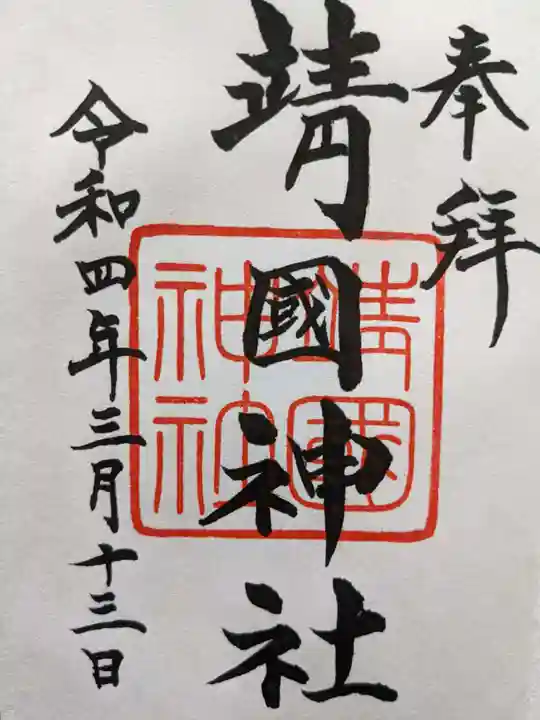 奉拜
靖國神社
令和四年三月十三日
靖國
神社